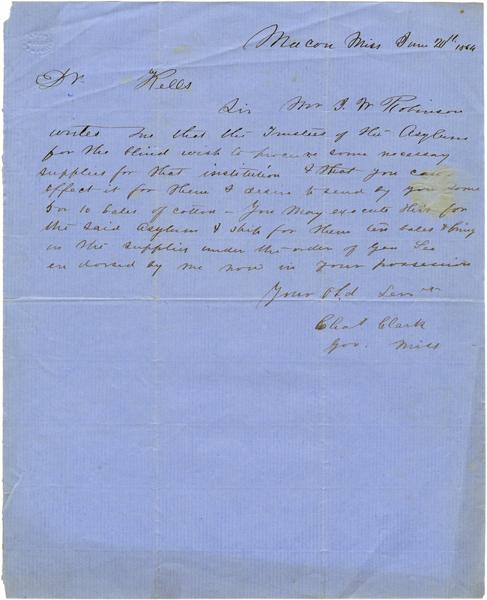 Macon Miss June 20th 1864
Dr Kells
Sir Mr J. W Robinson
writes me that the Trustees of the Asylum
for the blind wish to procure some necessary
supplies for that institution & that you can
effect it for them & desire to send by you some
5 or 10 bales of cotton - You may execute this for
the said Asylum & ship for them ten bales & bring
in the supplies under the order of Gen Lee
endorsed by me now in your possession
Your Obd Servt
Chas Clark
Gov. Miss